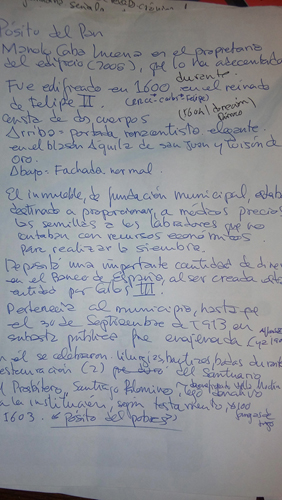 Pósito del Pan
Manolo Cobo Lucena es el propietario
del edificio (2005), que lo ha adecentado
durante
Fue edificado en 1600 en el reinado
de Felipe II.
Consta de dos cuerpos
Arriba = portada renacentista elegante
en el blasón Águila de San Juan y Toisón de
oro.
Abajo = Fachada normal
El inmueble, de fundación municipal, estaba
destinado a proporcionar a módicos precios
las semillas a los labradores que no
contaban con recursos económicos
para realizar la siembra.
Depositó una importante cantidad de dinero
en el Banco de España, al ser creada esta
entidad por Carlos III.
Pertenecía al municipio, hasta que
el 30 de Septiembre de 1913 en
subasta pública fue enajenada
en él se celebraron liturgias, bautizos, bodas durante
restauración (2) del Santuario
El Presbítero, Santiago Palomino, legó donativo
a la institución, según testamento, 
1603. "Pósito del pobres"